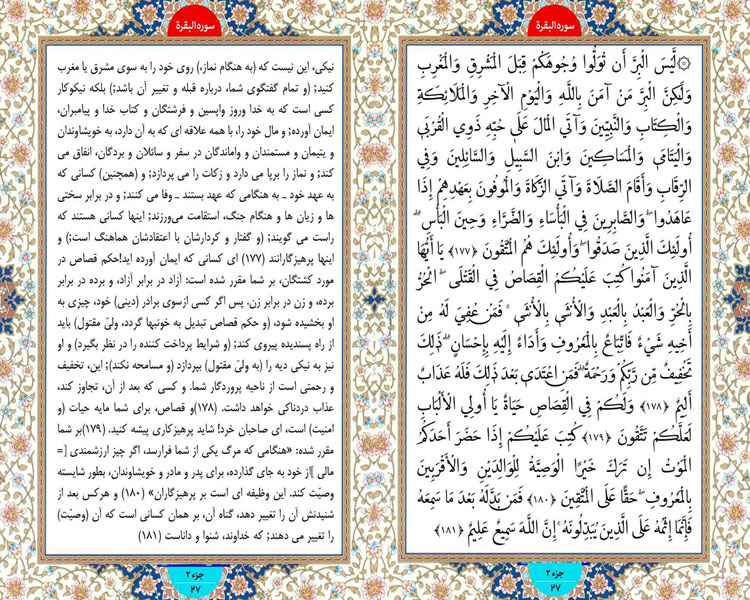 سوره البقرة
۞ لَّيْسَ الْبِرَّ أَن تُوَلُّوا وُجُوهَكُمْ قِبَلَ الْمَشْرِقِ وَالْمَغْرِبِ
وَلَٰكِنَّ الْبِرَّ مَنْ آمَنَ بِاللَّهِ وَالْيَوْمِ الْآخِرِ وَالْمَلَائِكَةِ
وَالْكِتَابِ وَالنَّبِيِّينَ وَآتَى الْمَالَ عَلَىٰ حُبِّهِ ذَوِي الْقُرْبَىٰ
وَالْيَتَامَىٰ وَالْمَسَاكِينَ وَابْنَ السَّبِيلِ وَالسَّائِلِينَ وَفِي
الرِّقَابِ وَأَقَامَ الصَّلَاةَ وَآتَى الزَّكَاةَ وَالْمُوفُونَ بِعَهْدِهِمْ إِذَا
عَاهَدُوا ۖ وَالصَّابِرِينَ فِي الْبَأْسَاءِ وَالضَّرَّاءِ وَحِينَ الْبَأْسِ ۗ
أُولَٰئِكَ الَّذِينَ صَدَقُوا ۖ وَأُولَٰئِكَ هُمُ الْمُتَّقُونَ ﴿۱۷۷﴾ يَا أَيُّهَا
الَّذِينَ آمَنُوا كُتِبَ عَلَيْكُمُ الْقِصَاصُ فِي الْقَتْلَى ۖ الْحُرُّ
بِالْحُرِّ وَالْعَبْدُ بِالْعَبْدِ وَالْأُنثَىٰ بِالْأُنثَىٰ ۚ فَمَنْ عُفِيَ لَهُ مِنْ
أَخِيهِ شَيْءٌ فَاتِّبَاعٌ بِالْمَعْرُوفِ وَأَدَاءٌ إِلَيْهِ بِإِحْسَانٍ ۗ ذَٰلِكَ
تَخْفِيفٌ مِّن رَّبِّكُمْ وَرَحْمَةٌ ۗ فَمَنِ اعْتَدَىٰ بَعْدَ ذَٰلِكَ فَلَهُ عَذَابٌ
أَلِيمٌ ﴿۱۷۸﴾ وَلَكُمْ فِي الْقِصَاصِ حَيَاةٌ يَا أُولِي الْأَلْبَابِ
لَعَلَّكُمْ تَتَّقُونَ ﴿۱۷۹﴾ كُتِبَ عَلَيْكُمْ إِذَا حَضَرَ أَحَدَكُمُ
الْمَوْتُ إِن تَرَكَ خَيْرًا الْوَصِيَّةُ لِلْوَالِدَيْنِ وَالْأَقْرَبِينَ
بِالْمَعْرُوفِ ۖ حَقًّا عَلَى الْمُتَّقِينَ ﴿۱۸۰﴾ فَمَن بَدَّلَهُ بَعْدَ مَا سَمِعَهُ
فَإِنَّمَا إِثْمُهُ عَلَى الَّذِينَ يُبَدِّلُونَهُ ۚ إِنَّ اللَّهَ سَمِيعٌ عَلِيمٌ ﴿۱۸۱﴾
جزء ۲
۲۷
سوره البقرة
نیکی، این نیست که (به هنگام نماز،) روی خود را به سوی مشرق یا مغرب
کنید؛ (و تمام گفتگوی شما، درباره قبله و تغییر آن باشد؛) بلکه نیکوکار
کسی است که به خدا وروز واپسین و فرشتگان و کتاب خدا و پیامبران،
ایمان آورده؛ و مال خود را، با همه علاقه ای که به آن دارد، به خویشاوندان
و یتیمان و مستمندان و واماندگان در سفر و سائلان و بردگان، انفاق می
کند؛ و نماز را برپا می دارد و زکات را می پردازد؛ و (همچنین) کسانی که
به عهد خود ـ به هنگامی که عهد بستند ـ وفا می کنند؛ و در برابر سختی
ها و زیان ها و هنگام جنگ، استقامت می‌ورزند؛ اینها کسانی هستند که
راست می گویند؛ (و گفتار و کردارشان با اعتقادشان هماهنگ است؛) و
اینها پرهیزگارانند (۱۷۷) ای کسانی که ایمان آورده اید!حکم قصاص در
مورد کشتگان، بر شما مقرر شده است: آزاد در برابر آزاد، و برده در برابر
برده، و زن در برابر زن. پس اگر کسی ازسوی برادر (دینی) خود، چیزی به
او بخشیده شود، (و حکم قصاص تبدیل به خونبها گردد، ولیّ مقتول) باید
از راه پسندیده پیروی کند؛ (و شرایط پرداخت کننده را در نظر بگیرد) و او
نیز به نیکی دیه را (به ولیّ مقتول) بپردازد (و مسامحه نکند)؛ این، تخفیف
و رحمتی است از ناحیه پروردگار شما. و کسی که بعد از آن، تجاوز کند،
عذاب دردناکی خواهد داشت. (۱۷۸)و قصاص، برای شما مایه حیات (و
امنیت) است، ای صاحبان خرد! شاید پرهیزکاری پیشه کنید. (۱۷۹)بر شما
مقرر شده: «هنگامی که مرگ یکی از شما فرارسد، اگر چیز ارزشمندی [=
مالی ]از خود به جای گذارده، برای پدر و مادر و خویشاوندان، بطور شایسته
وصیّت کند. این وظیفه ای است بر پرهیزگاران» (۱۸۰) و هرکس بعد از
شنیدنش آن را تغییر دهد، گناه آن، بر همان کسانی است که آن (وصیّت)
را تغییر می دهند؛ که خداوند، شنوا و داناست (۱۸۱)
جزء ۲
۲۷